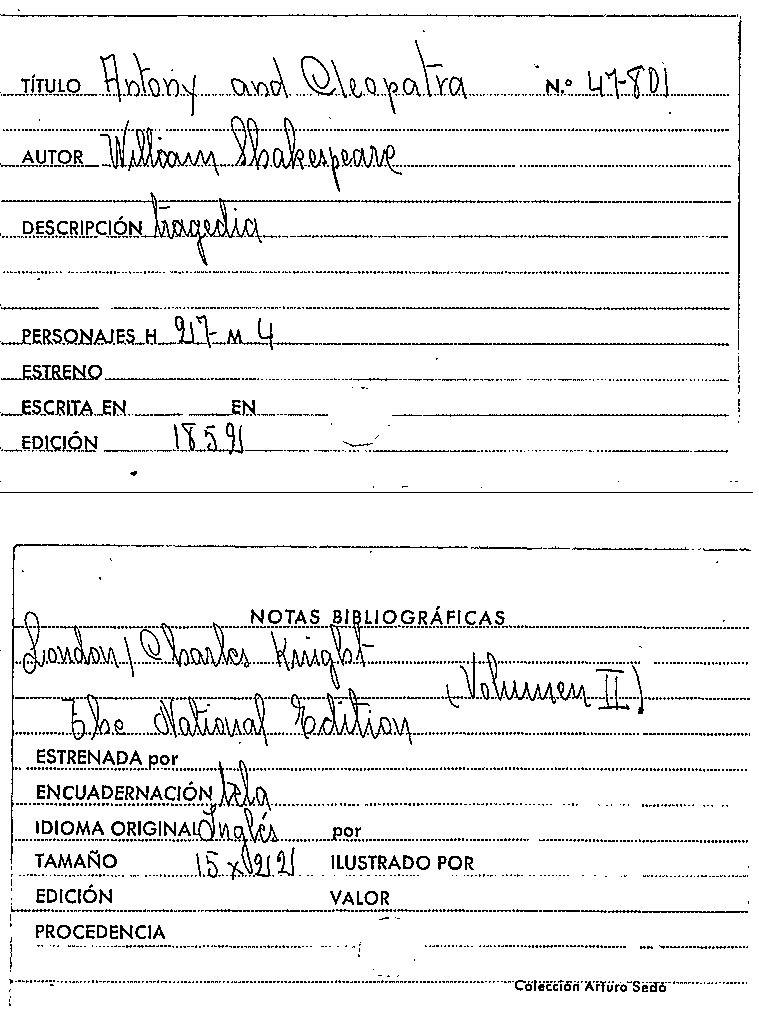 TÍTULO Antony and Cleopatra N.º 47-801
AUTOR William Shakespeare
DESCRIPCIÓN tragedia
PERSONAJES H 27- M 4
ESTRENO
ESCRITA EN EN
EDICIÓN 1852
NOTAS BIBLIOGRÁFICAS
London / Charles Knight
(Volumen II)
The National Edition
ESTRENADA por
ENCUADERNACIÓN tela
IDIOMA ORIGINAL Inglés por
TAMAÑO 15 x 22 ILUSTRADO POR
EDICIÓN VALOR
PROCEDENCIA
Colección Arturo Sedó